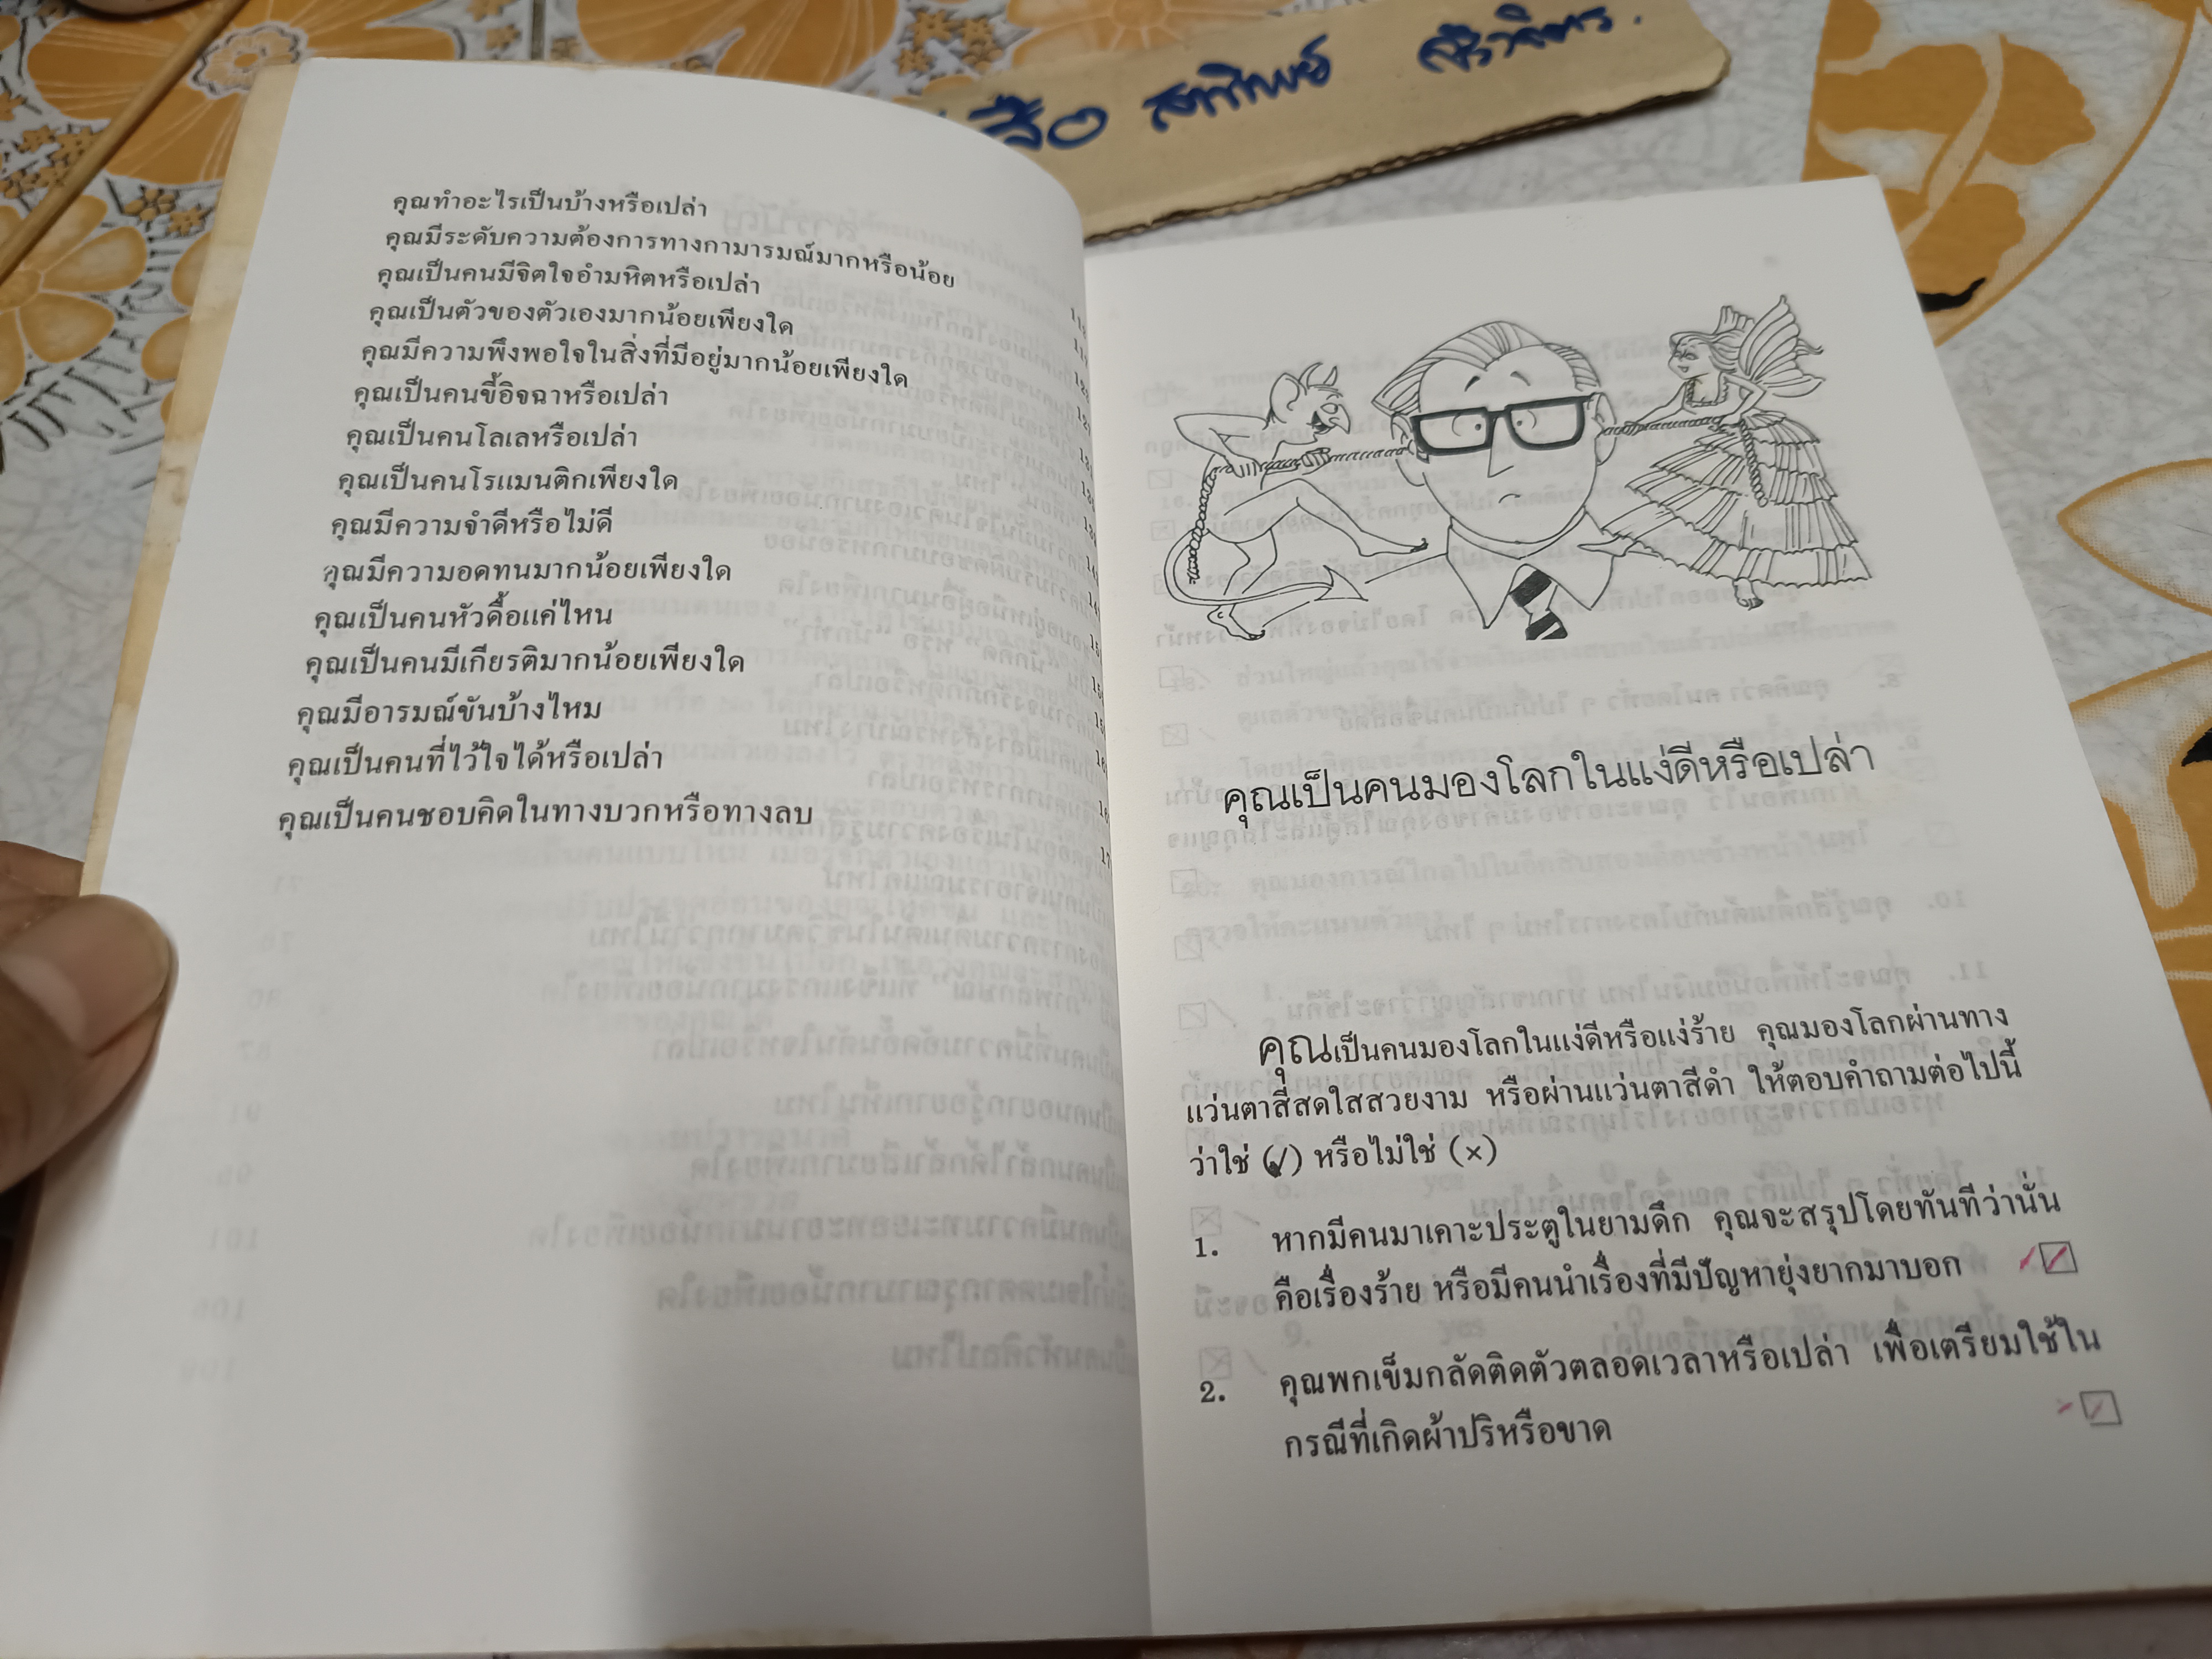 สาทิพย์
คุณทำอะไรเป็นบ้างหรือเปล่า
คุณมีระดับความต้องการทางกามารมณ์มากหรือน้อย
คุณเป็นคนมีจิตใจอำมหิตหรือเปล่า
คุณเป็นตัวของตัวเองมากน้อยเพียงใด
คุณมีความพึงพอใจในสิ่งที่มีอยู่มากน้อยเพียงใด
คุณเป็นคนขี้อิจฉาหรือเปล่า
คุณเป็นคนโลเลหรือเปล่า
คุณเป็นคนโรแมนติกเพียงใด
คุณมีความจำดีหรือไม่ดี
คุณมีความอดทนมากน้อยเพียงใด
คุณเป็นคนหัวดื้อแค่ไหน
คุณเป็นคนมีเกียรติมากน้อยเพียงใด
คุณมีอารมณ์ขันบ้างไหม
คุณเป็นคนที่ไว้ใจได้หรือเปล่า
คุณเป็นคนชอบคิดในทางบวกหรือทางลบ
คุณเป็นคนมองโลกในแง่ดีหรือเปล่า
คุณเป็นคนมองโลกในแง่ดีหรือแง่ร้าย คุณมองโลกผ่านทาง
แว่นตาสีสดใสสวยงาม หรือผ่านแว่นตาสีดำ ให้ตอบคำถามต่อไปนี้
ว่าใช่ (✓) หรือไม่ใช่ (×)
1. หากมีคนมาเคาะประตูในยามดึก คุณจะสรุปโดยทันทีว่านั่น
คือเรื่องร้าย หรือมีคนนำเรื่องที่มีปัญหายุ่งยากมาบอก
2. คุณพกเข็มกลัดติดตัวตลอดเวลาหรือเปล่า เพื่อเตรียมใช้ใน
กรณีที่เกิดผ้าปริหรือขาด